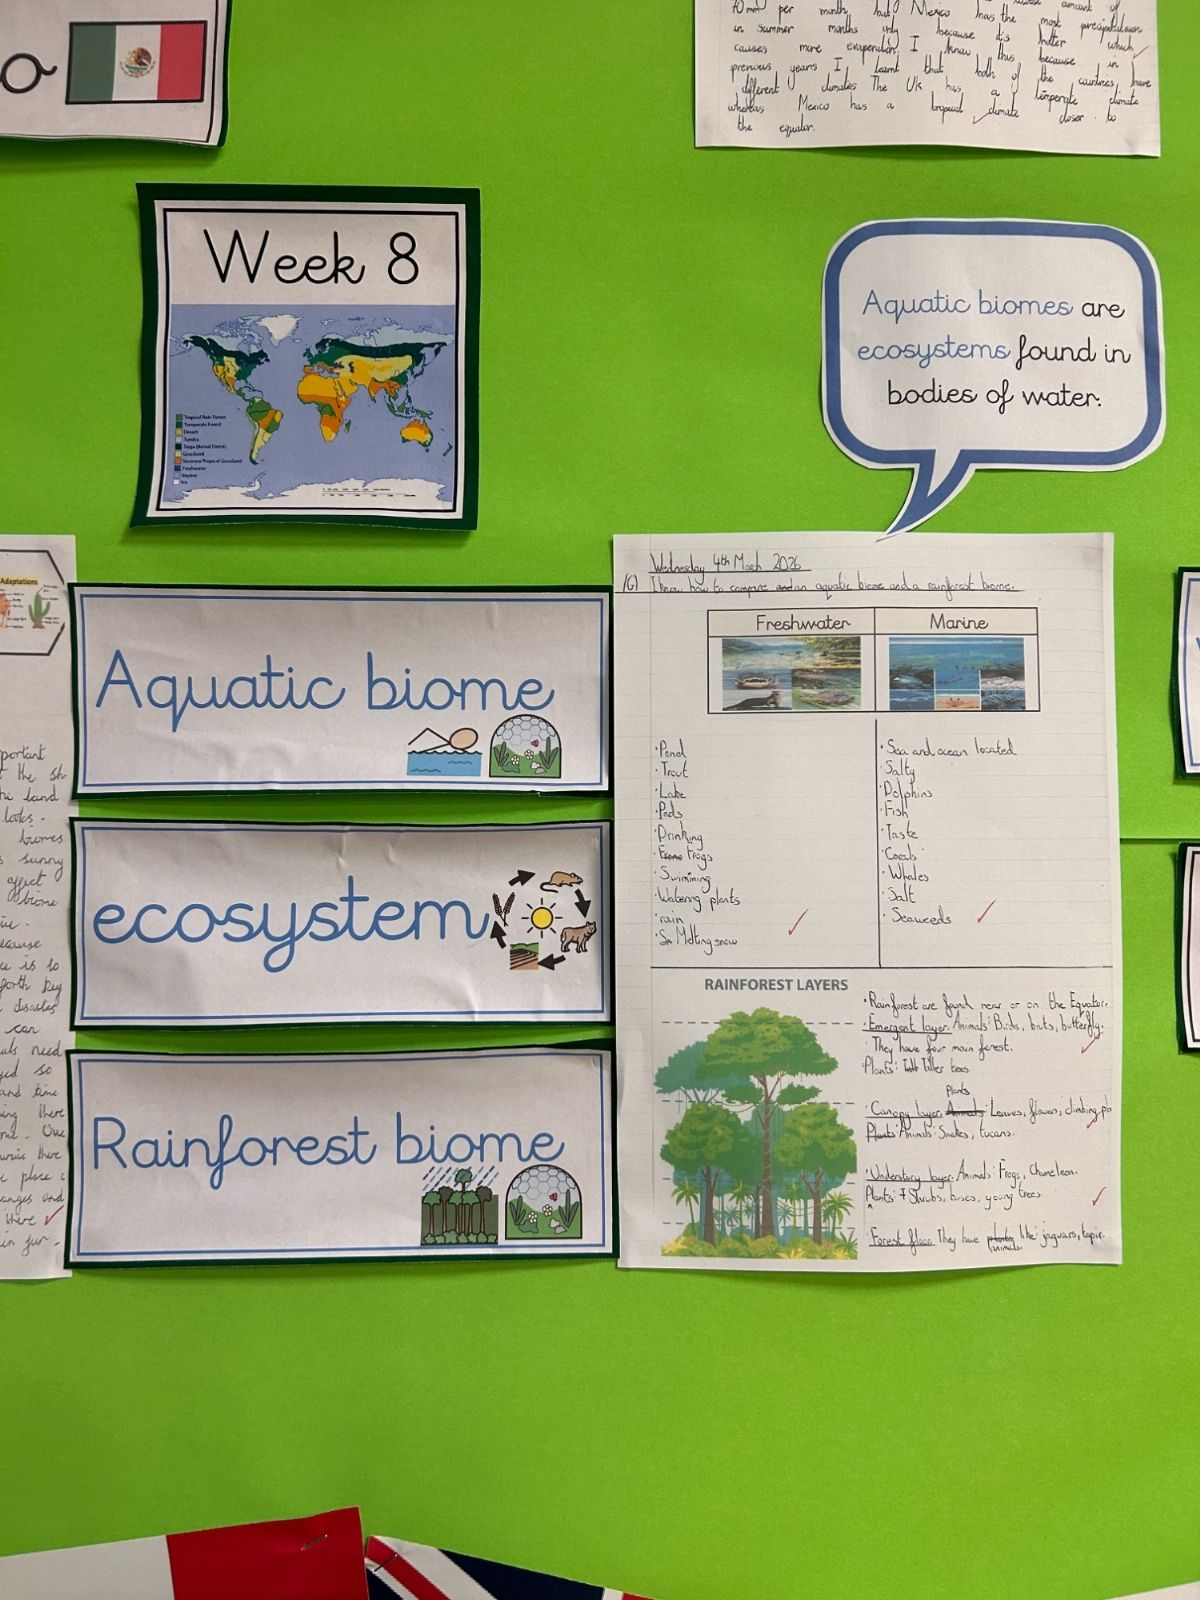 a
10mm per month but? Mexico has the most precipitation
in summer months only because its hotter which
causes more evaporation. I know this because in
previous years I learnt that both of the countries have
different climates The UK has a temperate climate
whereas Mexico has a tropical climate closer to
the equator.
Week 8
Tropical Rain Forest
Temperate Forest
Desert
Tundra
Taiga (Boreal Forest)
Grassland
Savanna/Tropical Grassland
Freshwater
Marine
Ice
Aquatic biomes are
ecosystems found in
bodies of water.
Adaptations
portant
t the sh
he land
looks.
biomes
s sunny
affect
biome
ecause
ce is to
forth key
disaster
can
als need
yed so
and time
ing there
me. One
place i
anges and
there
in fur.
Aquatic biome
ecosystem
Rainforest biome
Wednesday 4th March 2026
(G) I know how to compare an aquatic biome and a rainforest biome.
Freshwater
Marine
·Pond
·Trout
·Lake
·Pods
·Drinking
·Frogs
·Swimming
·Watering plants
·rain
·Melting snow
·Sea and ocean located
·Salty
·Dolphins
·Fish
·Taste
·Corals
·Whales
·Salt
·Seaweeds
RAINFOREST LAYERS
·Rainforest are found near or on the Equator.
·Emergent layer: Animals: Birds, bats, butterfly.
·They have four main forest.
Plants: Taller trees
Plants
·Canopy layer: Animals: Leaves, flowers, climbing pla
Plants Animals: Snakes, tucans.
·Understory layer: Animals: Frogs, Chameleon.
Plants: Shrubs, bushes, young trees
·Forest floor: They have plants like: jaguars, tapir.
animals